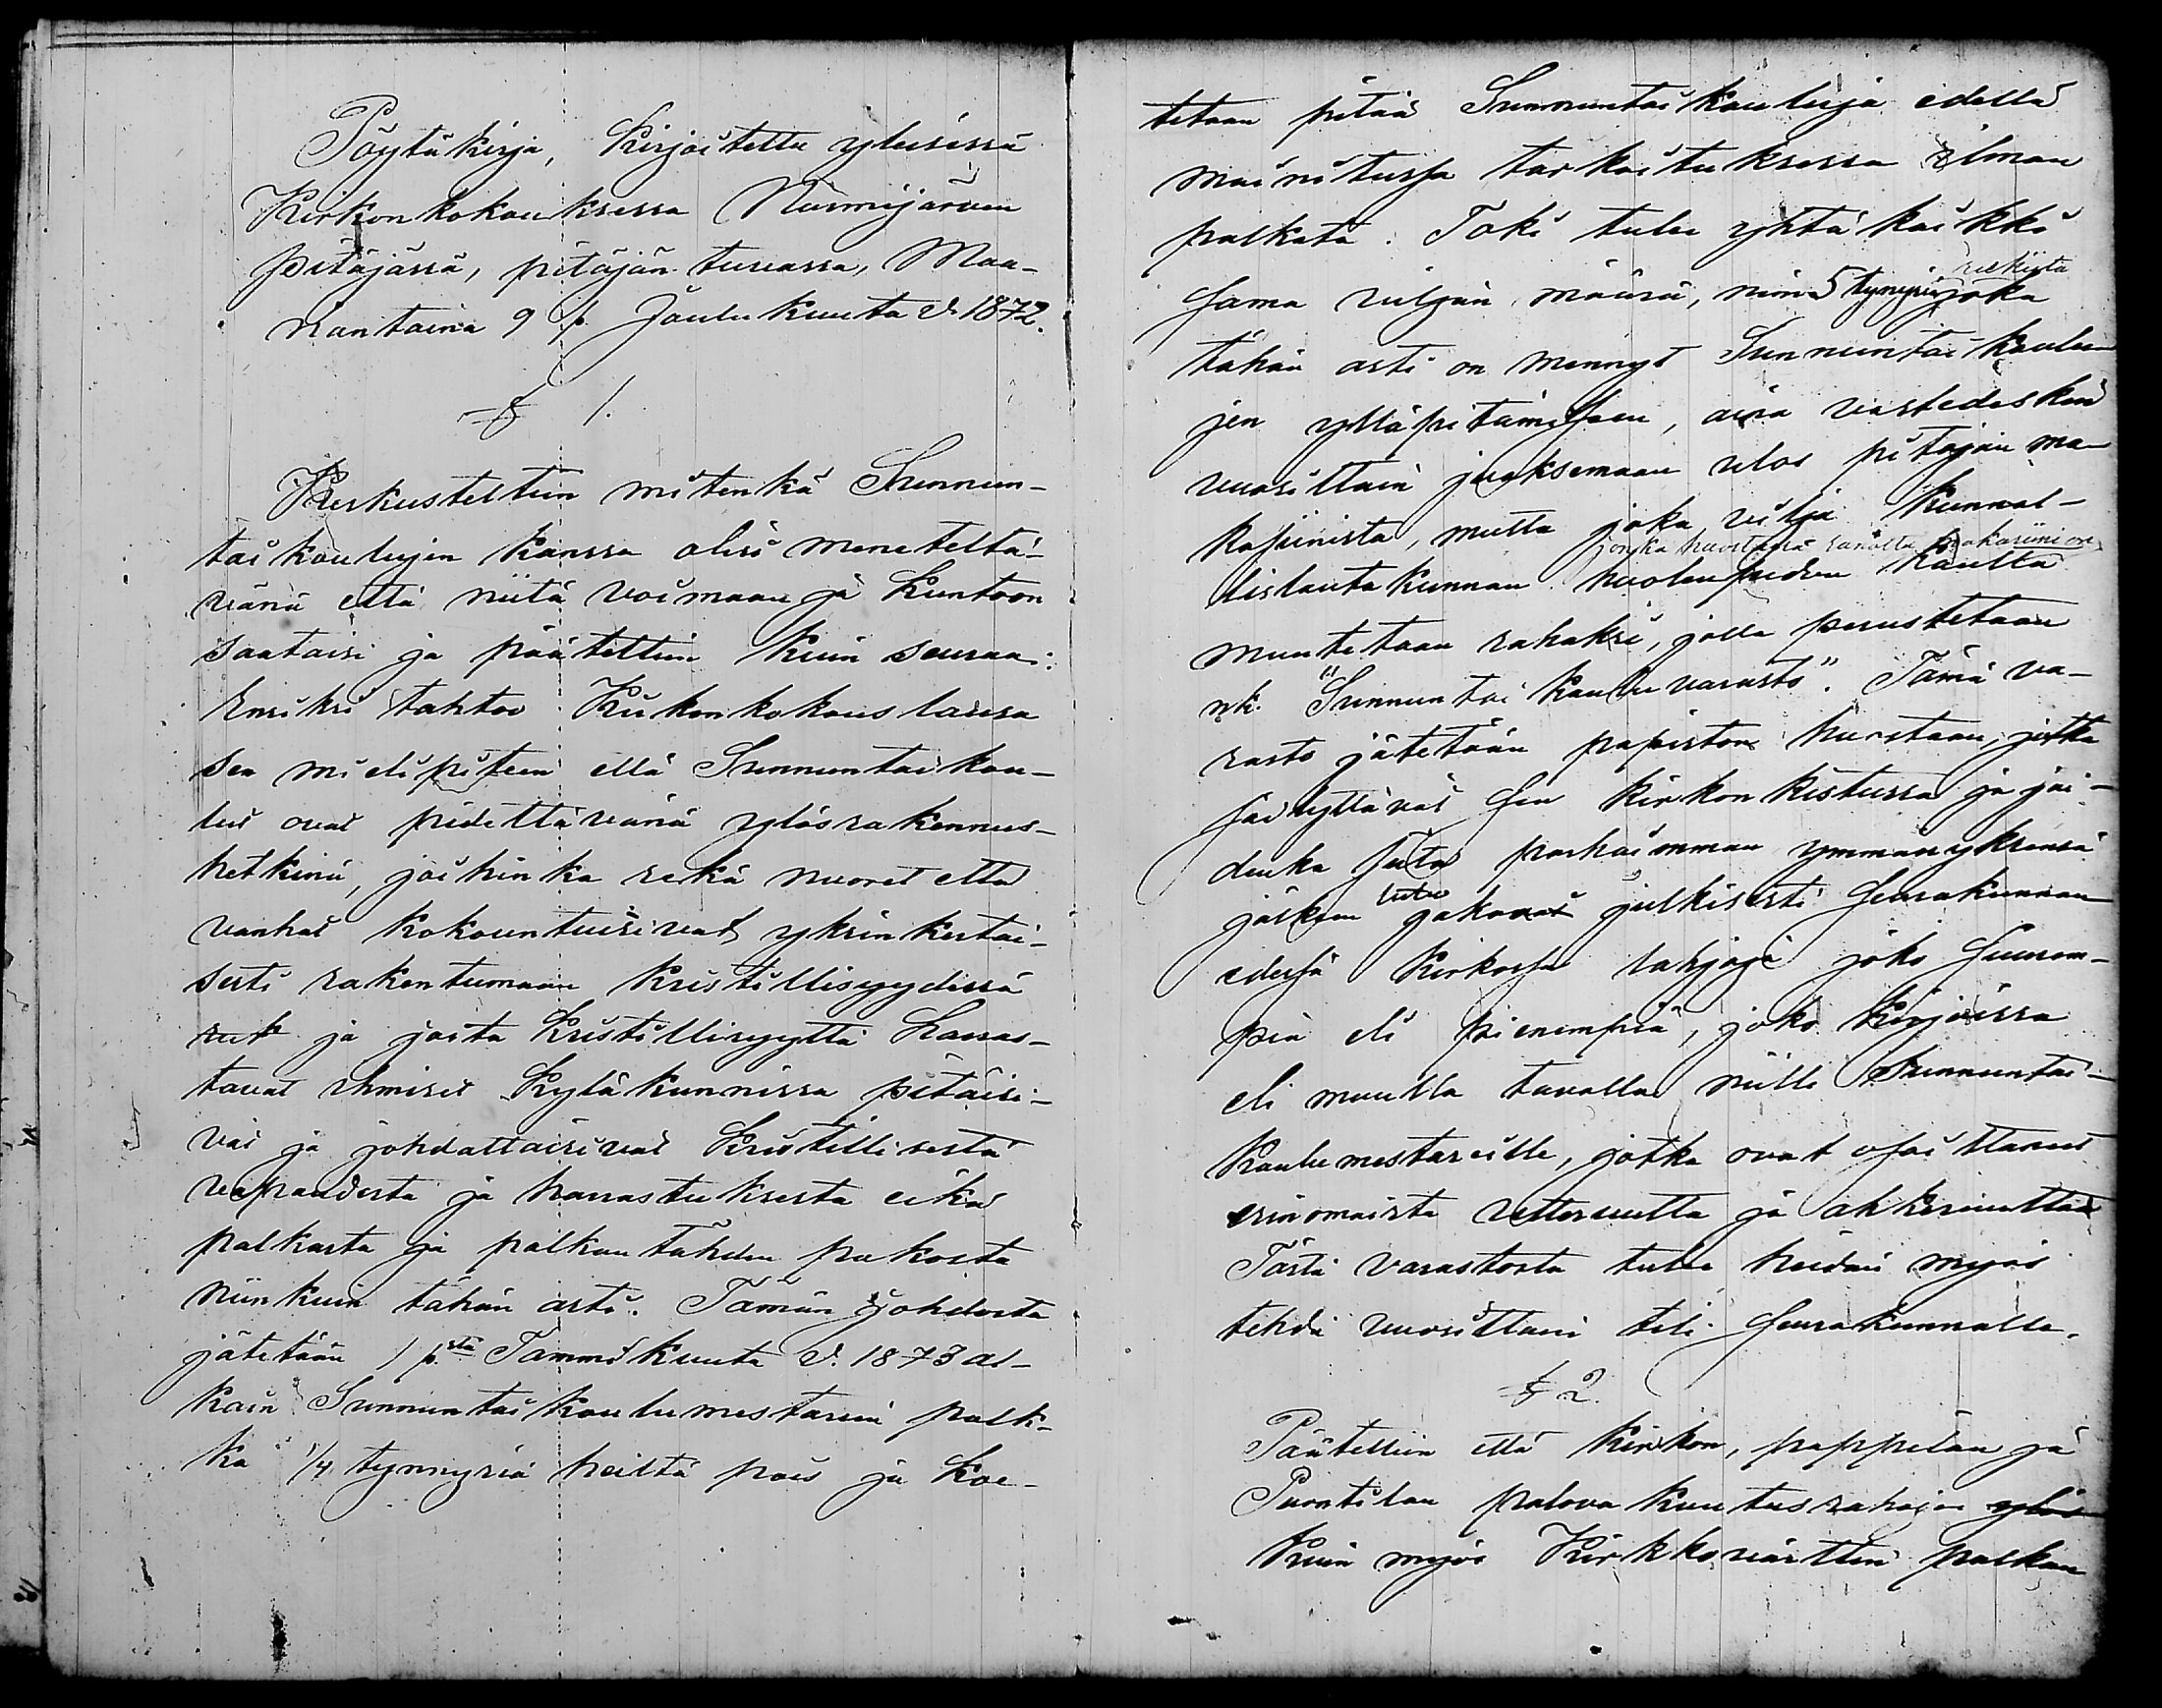 Pöytäkirja, Kirjoitettu yleisessä
Kirkonkokouksessa Nurmijärven
pitäjässä, pitäjän tuvassa, Maa-
nantaina 9 p. Joulukuuta v. 1872.
§ 1.
Keskusteltiin mitenkä Sunnun-
tai koulujen kanssa olisi meneteltä-
vänä että niitä voimaan ja kuntoon
saataisi ja päätettiin kuin seuraa:
Ensiksi tahtoo Kirkonkokous lausua
sen mielipiteen että Sunnuntai kou-
lut ovat pidettävänä ylösrakennus-
hetkinä, joihinka sekä nuoret että
vanhat kokountuisivat yksinkertai-
sesti rakentumaan kristillisyydessä
ja joita kristillisyyttä harras-
tavat ihmiset kyläkunnissa pitäisi-
vät ja johdattaisivat kristillisestä
vapaudesta ja harrastuksesta eikä
palkasta ja palkan tähden pakosta
niinkuin tähän asti. Tämän johdosta
jätetään 1 p:stä Tammikuuta v. 1873 al-
kain Sunnuntai koulumestarein palk-
ka 1/4 tynnyriä heiltä pois ja koe-
tetaan pitää Sunnuntai kouluja edellä
mainitussa tarkoituksessa ilman
palkata. Toki tulee yhtä kaikki
sama viljan määrä, nim. 5 tynyriä rukiita joka
tähän asti on mennyt Sunnuntai koulu-
jen ylläpitämiseen, aina vastedeskin
vuosittain juoksemaan ulos pitäjän ma-
kasiinista, mutta joka vilja kunnal-
lislautakunnan jonka huostassa sanottu makasiini on huolenpidon kautta
muutetaan rahaksi, jolla perustetaan
nk. "Sunnuntai koulu varasto". Tämä va-
rasto jätetään papiston huostaan, jotka
säilyttävät sen kirkon kistussa ja joi-
denka siitä parhaimman ymmärryksensä
jälkeen tulee jakaa julkisesti seurakunnan
edessä kirkossa lahjoja joko suurem-
pia eli pienempiä, joko kirjoissa
eli muulla tavalla niille Sunnuntai-
koulumestareille, jotka ovat osoittaneet
erinomaista uutteruutta ja ahkeruutta
Tästä varastosta tulee heidän myös
tehdä vuosittain tili seurakunnalle.
§ 2.
Päätettiin että kirkon, pappilan ja
Puontilan palovakuutusrahoja ylös
kuin myös Kirkkoväärttin palkan